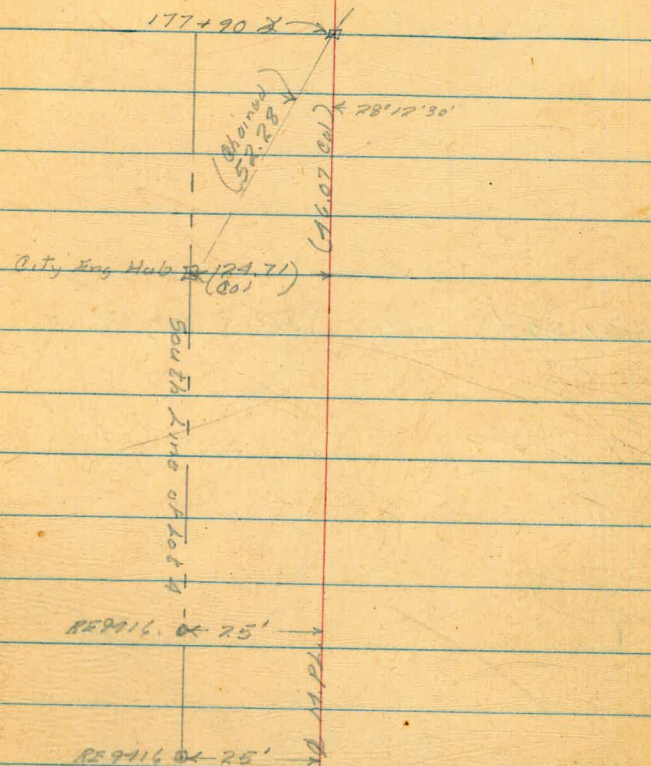 177+90
(Chained)
52.28
28°12'30'
(46.07 Col)
City Eng Hub
(24.71)
(Col
South Line of Lot 4
RE9916. 25'
RE9916 25'